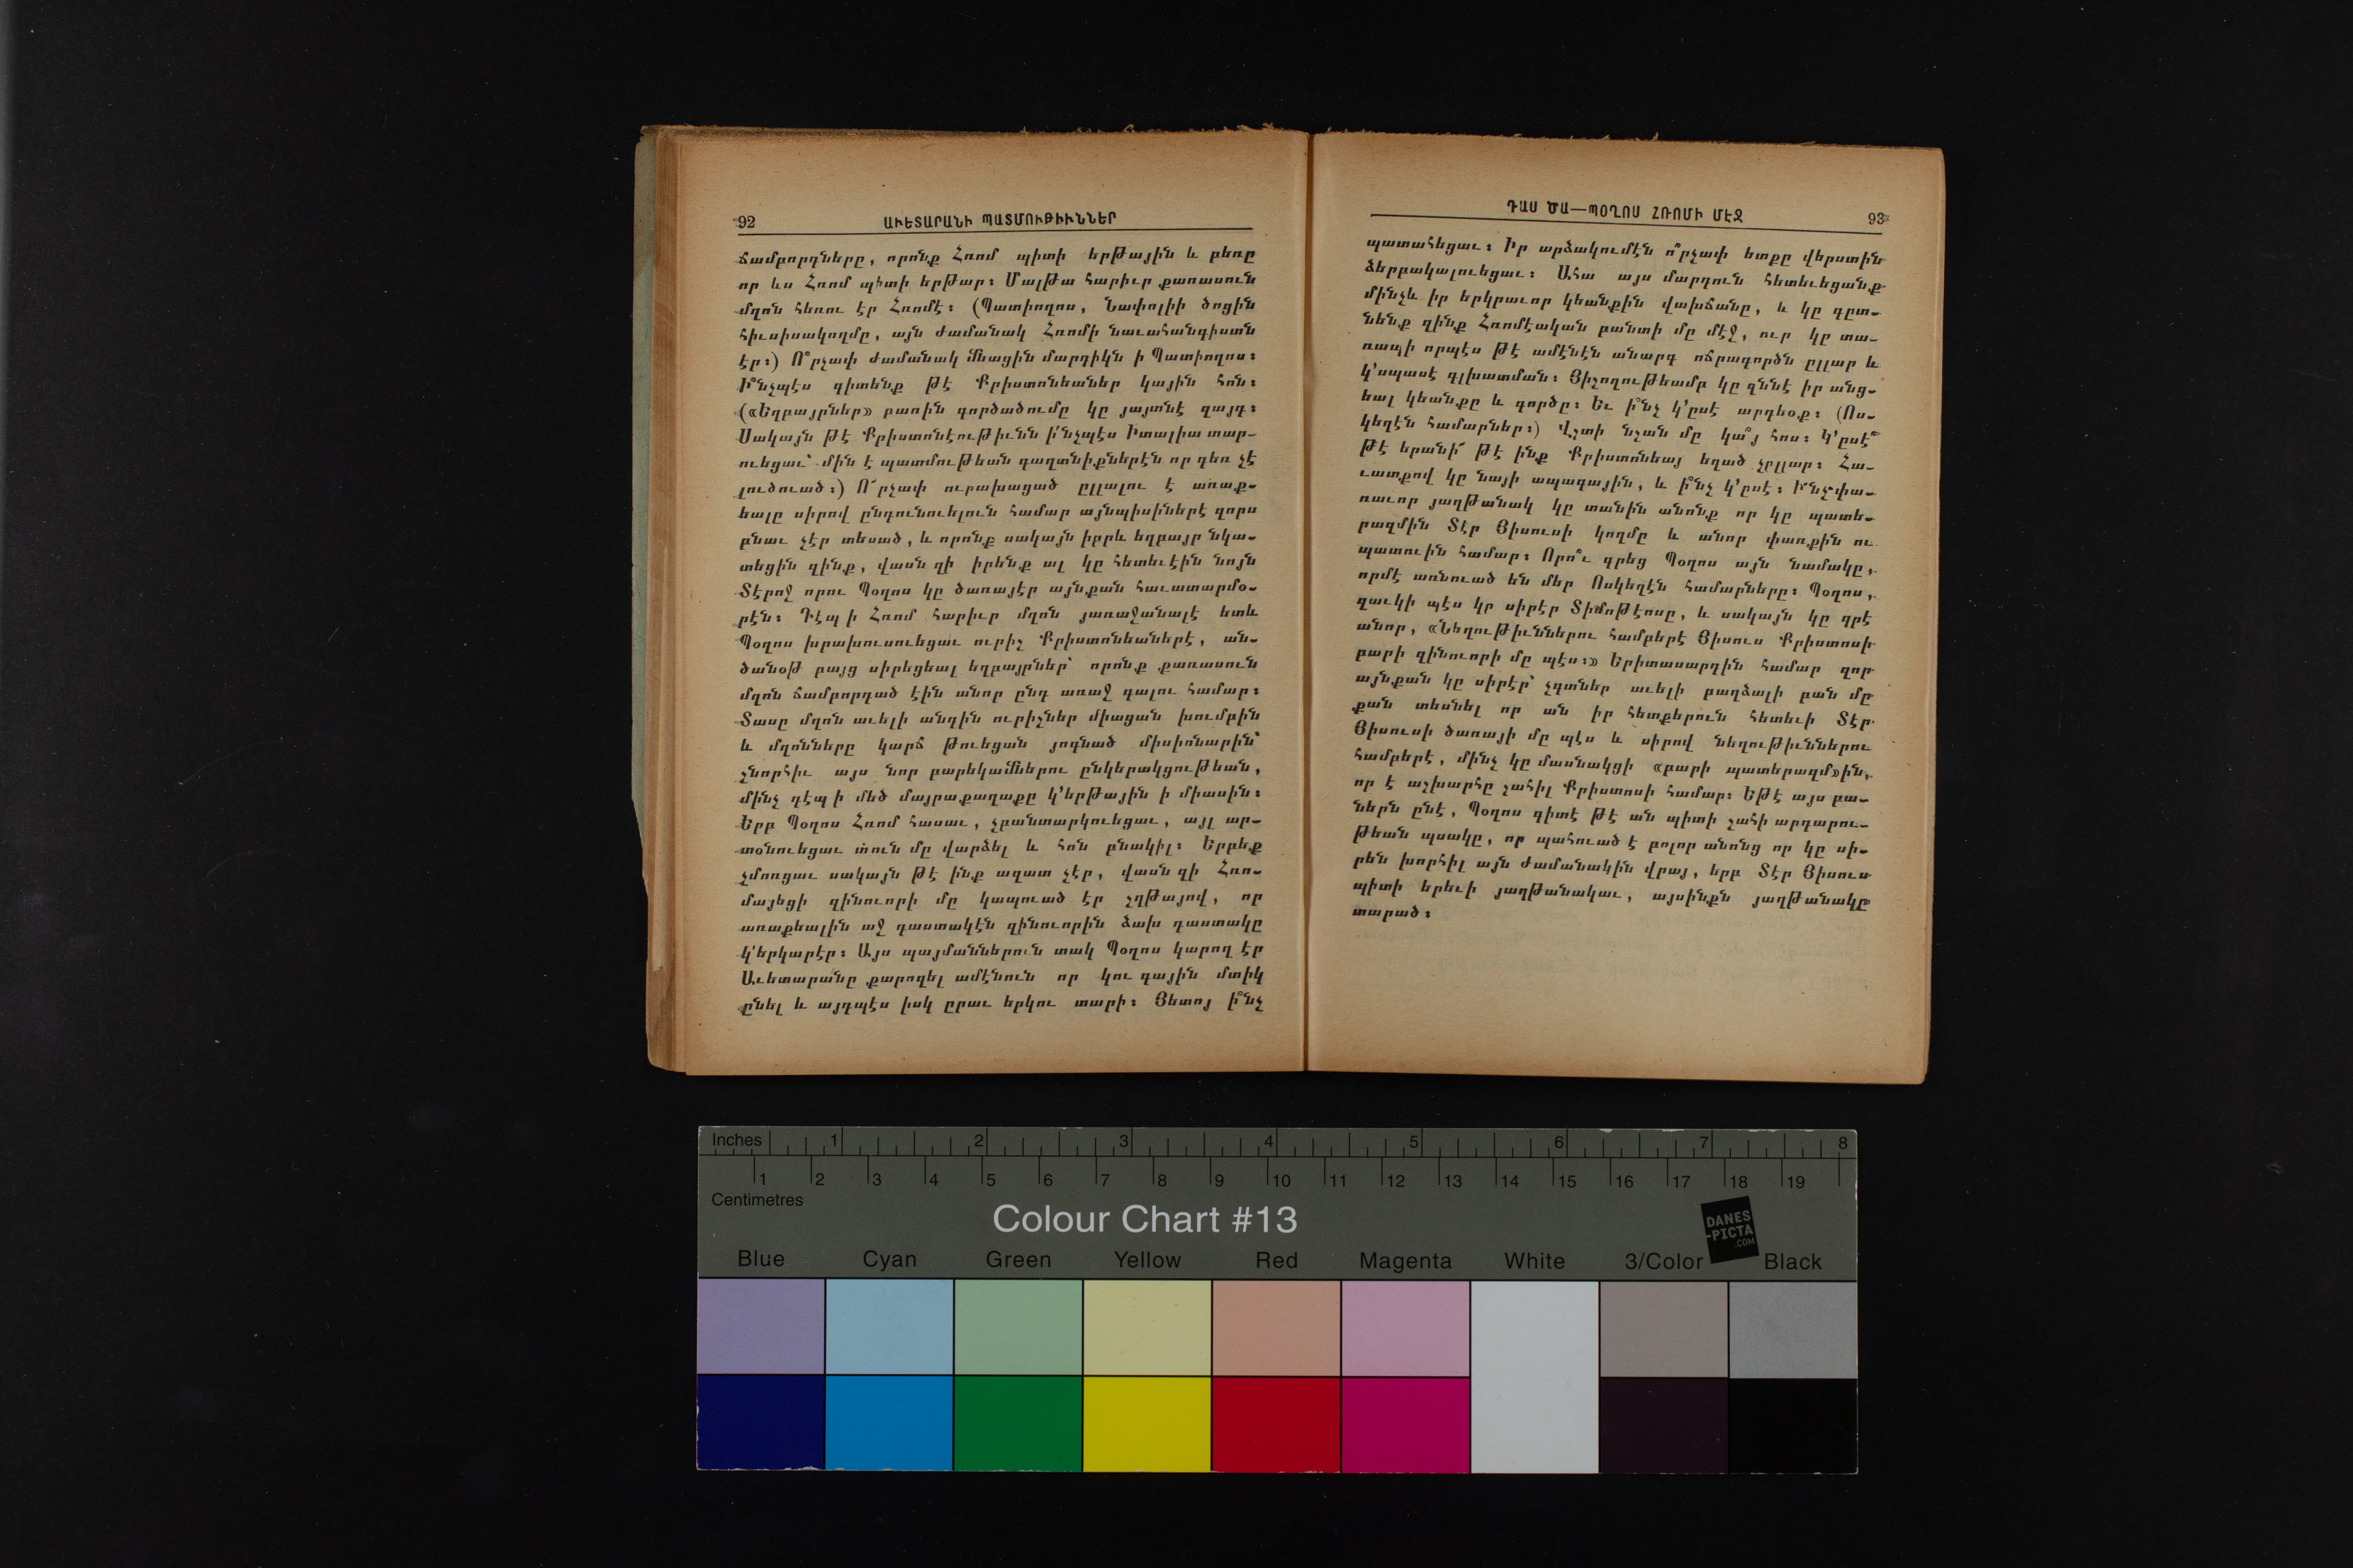 92 ԱՒԵՏԱՐԱՆԻ ՊԱՏՄՈՒԹԻՒՆՆԵՐ
ճամբորդները, որոնք Հռոմ պիտի երթային և բեռը
որ ևս Հռոմ պիտի երթար։ Մալթա հարիւր քառասուն
մղոն հեռու էր Հռոմէ։ (Պատիողոս, Նափոլիի ծոցին
հիւսիսակողմը, այն ժամանակ Հռոմի նաւահանգիստն
էր։) Ո՞րչափ ժամանակ մնացին մարդիկն ի Պատիողոս։
Ի՞նչպէս գիտենք թէ Քրիստոնեաներ կային հոն։
(«Եղբայրներ» բառին գործածումը կը յայտնէ զայդ։
Սակայն թէ Քրիստոնէութիւնն ի՛նչպէս Իտալիա տար-
ուեցաւ՝ մին է պատմութեան գաղտնիքներէն որ դեռ չէ
լուծուած։) Ո՜րչափ ուրախացած ըլլալու է առաք-
եալը սիրով ընդունուելուն համար այնպիսիներէ զորս
բնաւ չէր տեսած, և որոնք սակայն իբրև եղբայր նկա-
տեցին զինք, վասն զի իրենք ալ կը հետեւէին նոյն
Տէրոջ որու Պօղոս կը ծառայէր այնքան հաւատարմօ-
րէն։ Դէպ ի Հռոմ հարիւր մղոն յառաջանալէ ետև
Պօղոս խրախուսուեցաւ ուրիչ Քրիստոնեաներէ, ան-
ծանօթ բայց սիրեցեալ եղբայրներ՝ որոնք քառասուն
մղոն ճամբորդած էին անոր ընդ առաջ գալու համար։
Տասը մղոն աւելի անդին ուրիչներ միացան խումբին
և մղոնները կարճ թուեցան յոգնած միսիոնարին՝
շնորհիւ այս նոր բարեկամներու ընկերակցութեան,
մինչ դէպ ի մեծ մայրաքաղաքը կ'երթային ի միասին։
Երբ Պօղոս Հռոմ հասաւ, չբանտարկուեցաւ, այլ ար-
տօնուեցաւ տուն մը վարձել և հոն բնակիլ։ Երբեք
չմոռցաւ սակայն թէ ինք ազատ չէր, վասն զի Հռո-
մայեցի զինուորի մը կապուած էր շղթայով, որ
առաքեալին աջ դաստակէն զինուորին ձախ դաստակը
կ'երկարէր։ Այս պայմաններուն տակ Պօղոս կարող էր
Աւետարանը քարոզել ամէնուն որ կու գային մտիկ
ընել և այդպէս իսկ ըրաւ երկու տարի։ Յետոյ ի՞նչ
ԴԱՍ ԾԱ—ՊՕՂՈՍ ՀՌՈՄԻ ՄԷՋ 93
պատահեցաւ։ Իր արձակումէն ո՞րչափ ետքը վերստին
ձերբակալուեցաւ։ Ահա այս մարդուն հետեւեցանք
մինչև իր երկրաւոր կեանքին վախճանը, և կը գըտ-
նենք զինք Հռոմէական բանտի մը մէջ, ուր կը տա-
ռապի որպէս թէ ամէնէն անարգ ոճրագործն ըլլար և
կ'սպասէ գլխատման։ Յիշողութեամբ կը քննէ իր անց-
եալ կեանքը և գործը։ Եւ ի՞նչ կ'ըսէ արդեօք։ (Ոս-
կեղէն համարներ։) Վշտի նշան մը կա՞յ հոս։ Կ'ըսէ՞
թէ երանի՜ թէ ինք Քրիստոնեայ եղած չըլլար։ Հա-
ւատքով կը նայի ապագային, և ի՞նչ կ'ըսէ։ Ի՞նչ փա-
ռաւոր յաղթանակ կը տանին անոնք որ կը պատե-
րազմին Տէր Յիսուսի կողմը և անոր փառքին ու
պատուին համար։ Որո՞ւ գրեց Պօղոս այն նամակը,
որմէ առնուած են մեր Ոսկեղէն համարները։ Պօղոս,
զաւկի պէս կը սիրէր Տիմոթէոսը, և սակայն կը գրէ
անոր, «Նեղութիւններու համբերէ Յիսուս Քրիստոսի
բարի զինուորի մը պէս։» Երիտասարդին համար զոր
այնքան կը սիրէր՝ չգտներ աւելի բաղձալի բան մը
քան տեսնել որ ան իր հետքերուն հետեւի Տէր
Յիսուսի ծառայի մը պէս և սիրով նեղութիւններու
համբերէ, մինչ կը մասնակցի «բարի պատերազմ»ին,
որ է աշխարհը շահիլ Քրիստոսի համար։ Եթէ այս բա-
ներն ընէ, Պօղոս գիտէ թէ ան պիտի շահի արդարու-
թեան պսակը, որ պահուած է բոլոր անոնց որ կը սի-
րեն խորհիլ այն ժամանակին վրայ, երբ Տէր Յիսուս
պիտի երեւի յաղթանակաւ, այսինքն յաղթանակը
տարած։
Inches 1 2 3 4 5 6 7 8
1 2 3 4 5 6 7 8 9 10 11 12 13 14 15 16 17 18 19
Centimetres
Colour Chart #13
DANES
-PICTA
.COM
Blue Cyan Green Yellow Red Magenta White 3/Color Black